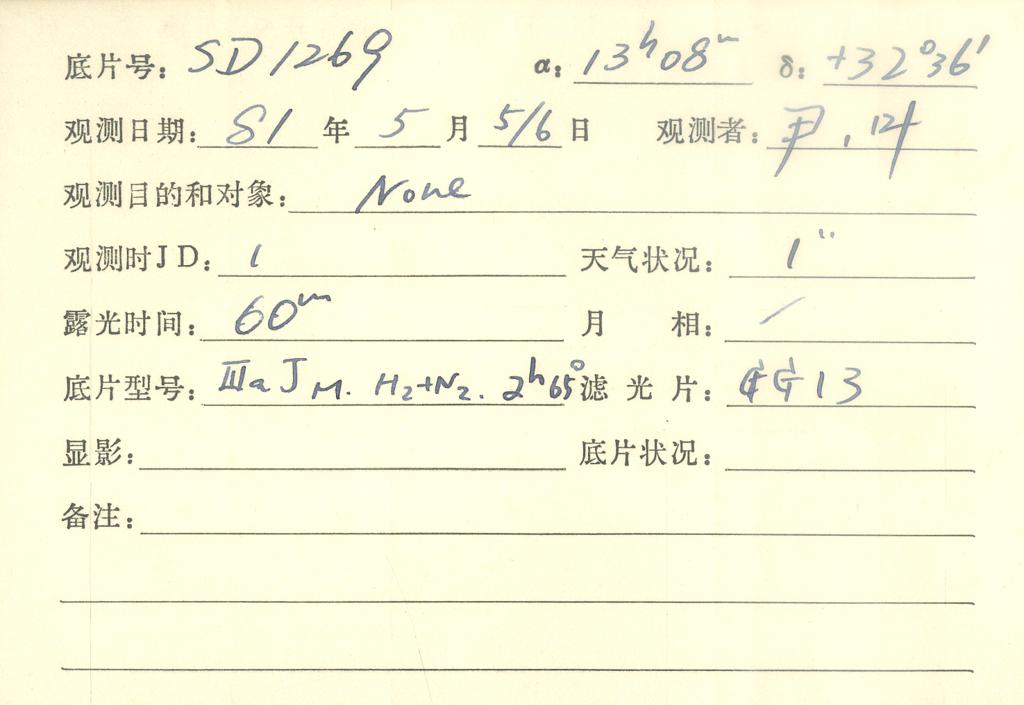 底片号: SD1269 α: 13ʰ08ᵐ δ: +32°36′
观测日期: 81 年 5 月 5/6 日 观测者: 尹,
观测目的和对象: None
观测时JD: 天气状况: 1″
露光时间: 60ᵐ 月 相: /
底片型号: ⅢaJ M. H₂+N₂. 2ʰ65° 滤 光 片: GG13
显影: 底片状况:
备注: